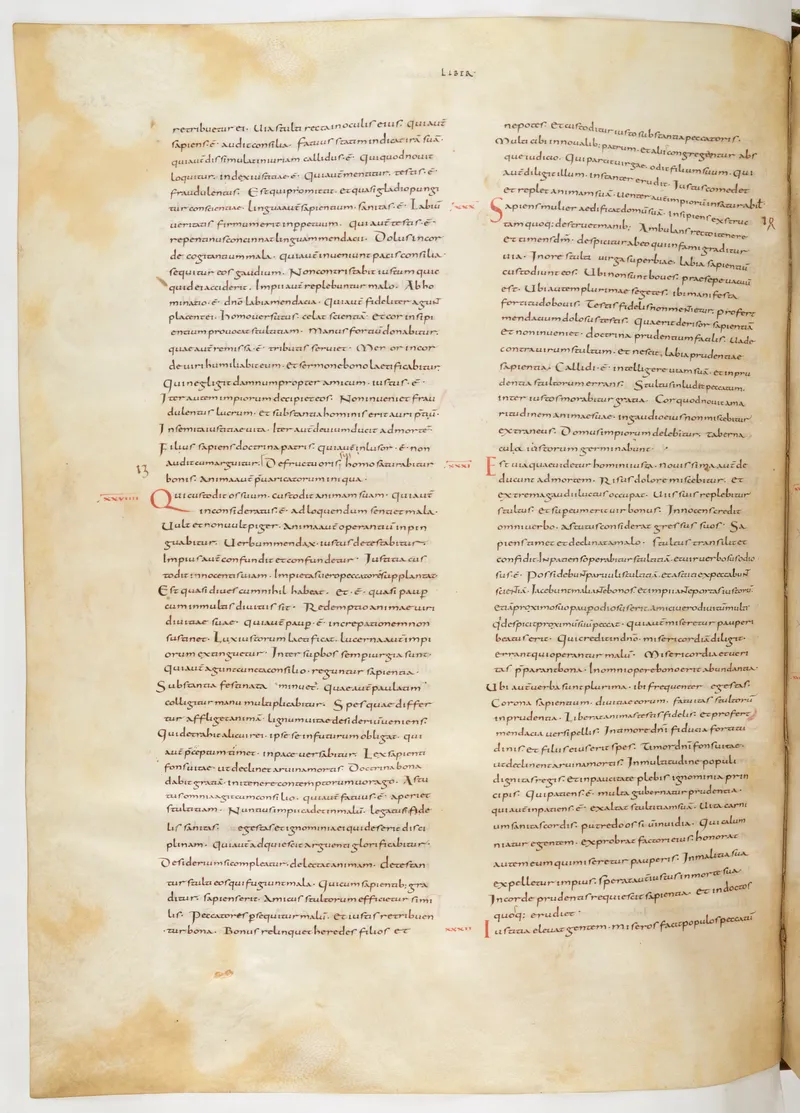 LIBER
retribuetur ei. Uia stulti recta in oculis eius. qui autē
sapiens ē. audit consilia. Fatuus statim indicat irā suā.
qui autē dissimulat iniuriam callidus ē. Qui quod nouit
loquitur. index iustitiae ē. Qui autē mentitur. testis ē.
fraudulentus. Est qui promittit. et quasi gladio pungi
tur conscientiae. lingua autē sapientium. sanitas ē. Labiū
ueritatis firmum erit inppetuum. qui autē testis ē.
repentinus concinnat linguam mendacii. Dolus in cor
de cogitantium mala. qui autē ineunt pacis consilia
sequitur eos gaudium. Non contristabit iustum quic
quid ei acciderit. Impii autē replebuntur malo. Abho
minatio ē. dnō labia mendacia. qui autē fideliter agunt
placent ei. homo uersutus celat scientiā. et cor insipi
entium prouocat stultitiam. Manus fortiū dominabitur.
quae autē remissa ē. tributis seruiet. Meror in cor
de uiri humiliabit eum. et sermone bono laetificabitur.
Qui neglegit damnum propter amicum. iustus ē.
Iter autem impiorum decipiet eos. Non inueniet frau
dulentus lucrum. et substantia hominis erit auri p̄tiū.
In semita iustitiae uita. Iter autē deuium ducit ad mortē.
Filius sapiens doctrina patris. qui autē inlusor ē. non
13 audit cum arguitur. De fructu oris sui homo satiabitur
bonis. Anima autē p̄uaricatorum iniqua.
XXVIIII Qui custodit os suum. custodit animam suam. qui autē
inconsideratus ē. ad loquendum sentiet mala.
Uult et non uult piger. Anima autē operantiū inpin
guabitur. Uerbum mendax iustus detestabitur.
Impius autē confundit et confundetur. Iustitia cus
todit innocentis uiam. Impietas uero peccatorē supplantat
Est quasi diues cum nihil habeat. et ē. quasi paup
cum in multis diuitiis sit. Redemptio animae uiri
diuitiae suae. qui autē paup ē. increpationem non
sustinet. Lux iustorum laetificat. lucerna autē impi
orum extinguetur. Inter supbos semper iurgia sunt.
qui autē agunt cuncta consilio. reguntur sapientia.
Substantia festinata minuet. Quae autē paulatim
colligitur manu multiplicabitur. Spes quae differ
tur affligit animā. lignum uitae desideriū ueniens.
Qui detrahit alicui rei. ipse se in futurum obligat. qui
autē p̄ceptum timet. in pace uersabitur. Lex sapienti
fons uitae. ut declinet a ruina mortis. Doctrina bona
dabit gratiā. in itinere contemptorum uorago. Astu
tus omnia agit cum consilio. qui autē fatuus ē. aperiet
stultitiam. Nuntius impii cadet in malū. legatus fide
lis sanitas. egestas et ignominia ei qui deserit disci
plinam. Qui autē adquiescit arguenti glorificabitur.
Desiderium si compleatur. delectat animam. detestan
tur stulti eos qui fugiunt mala. Qui cum sapientib; gra
ditur. sapiens erit. Amicus stultorum efficietur simi
lis. Peccatores p̄sequitur malū. et iustis retribuen
tur bona. Bonus relinquet heredes filios et
nepotes. et custoditur iusto substantia peccatoris.
Multi cibi in noualib; patrum. et alii congregentur abs
que iudicio. Qui parcit uirgae. odit filium suum. Qui
autē diligit illum. instanter erudit. Iustus comedet
et replet animam suā. Uenter autē impiorū insaturabilis
XXX Sapiens mulier aedificat domū suā. insipiens exstruc
14 tam quoq; destruet manib;. Ambulans recto itinere
et timens dm̄. despicitur ab eo qui infami graditur
uia. In ore stulti uirga superbiae. labia sapientiū
custodiunt eos. Ubi non sunt boues. praesepe uacuū
est. Ubi autem plurimae segetes. ibi manifesta
fortitudo bouis. Testis fidelis non mentietur. profert
mendacium dolosus testis. Quaerit derisor sapientiā
et non inueniet. doctrina prudentium facilis. Uade
contra uirum stultum. et nescit labia prudentiae
sapientia. Callidi ē. intellegere uiam suā. et inpru
dentia stultorum errans. Stultus inludit peccatum.
inter iustos morabitur gratia. Cor quod nouit ama
ritudinem animae suae. in gaudio eius non miscebitur
extraneus. Domus impiorum delebitur. taberna
cula iustorum germinabunt.
XXXI Est uia quae uidetur homini iusta. nouissima autē de
ducunt ad mortem. Risus dolore miscebitur. et
extrema gaudii luctus occupat. Uiis suis replebitur
stultus. et sup eum erit uir bonus. Innocens credit
omni uerbo. Astutus considerat gressus suos. Sa
piens timet et declinat malo. stultus transilit et
confidit. Inpatiens operabitur stultitiā. et uir uersutus odio
sus ē. Possidebunt paruuli stultitiā. et astuti expectabunt
scientiā. Iacebunt mali ante bonos. et impii ante portas iustorū.
Etiā proximo suo paup odiosus erit. Amici uero diuitū multi.
Qui despicit proximū suū peccat. qui autē miseretur pauperi
beatus erit. Qui credit in dnō. misericordiā diligit.
errant qui operantur malū. Misericordia et ueri
tas p̄parant bona. In omni opere bono erit abundantia.
Ubi autē uerba sunt plurima. ibi frequenter egestas.
Corona sapientium. diuitiae eorum. fatuitas stultorū
inprudentia. Liberat animas testis fidelis. et profert
mendacia uersipellis. In timore dnī fiducia fortitu
dinis. et filiis eius erit spes. Timor dnī fons uitae.
ut declinent a ruina mortis. In multitudine populi
dignitas regis. et in paucitate plebis ignominia prin
cipis. Qui patiens ē. multa gubernatur prudentia.
qui autē inpatiens ē. exaltat stultitiam suā. Uita carni
um sanitas cordis. putredo ossiū inuidia. Qui calum
niatur egentem. exprobrat factori eius. honorat
autem eum qui miseretur pauperis. In malitia sua
expelletur impius. sperat autē iustus in morte sua.
In corde prudentis requiescit sapientia. et indoctos
quoq; erudiet.
XXXII Iustitia eleuat gentem. miseros facit populos peccatū